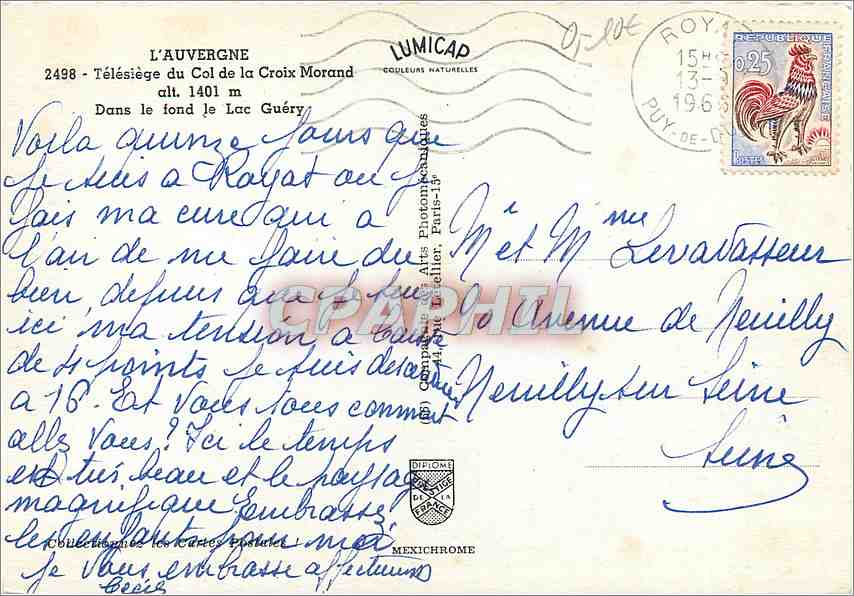 L'AUVERGNE
2498 - Télésiège du Col de la Croix Morand
alt. 1401 m
Dans le fond le Lac Guéry
LUMICAP
COULEURS NATURELLES
0,-10€
ROYAT
15H
13-
196
PUY-DE-DO
REPUBLIQUE FRANÇAISE
0,25
POSTES
Voila quinze jours que
je suis a Royat ou je
fais ma cure qui a
l'air de me faire du
bien, depuis que je suis
ici ma tension a baissé
de 4 points je suis descendue
a 16. Et vous tous comment
allez vous? Ici le temps
est très beau et le paysage
magnifique Embrassez
les enfants pour moi
je vous embrasse affectueus
Cécile
Collectionnez les Cartes Postales !
(66) Compagnie des Arts Photomécaniques
44, Rue Letellier, Paris-15e
CPAPHIL
M et Mme Levavasseur
90 Avenue de Neuilly
Neuilly sur Seine
Seine
DIPLOME
PRESTIGE
DE LA
FRANCE
MEXICHROME